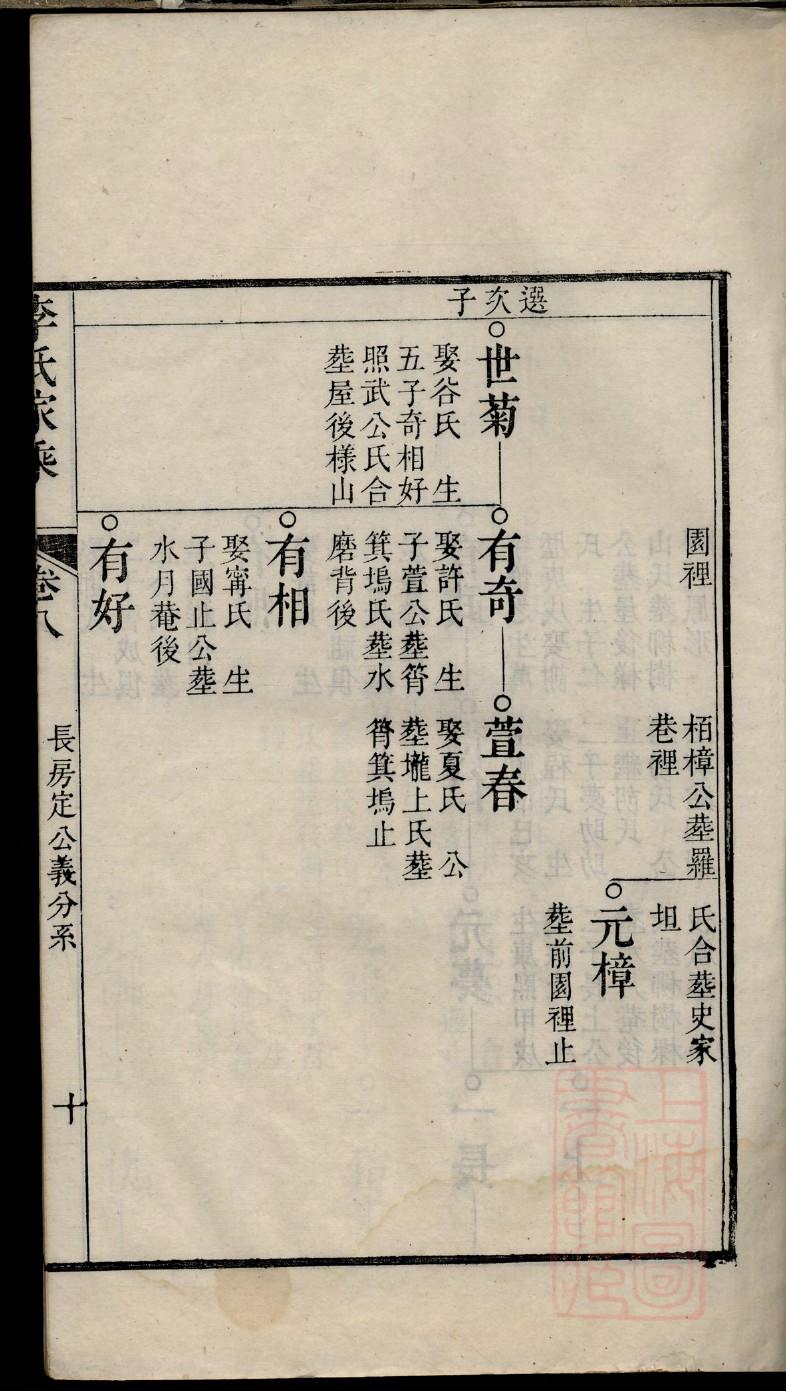 選次子
園裡
栢樟公塟羅
巷裡
氏合塟史家
坦
元樟
塟前園裡止
世菊
娶谷氏 生
五子奇相好
照武公氏合
塟屋後様山
有奇
娶許氏 生
子萱公塟筲
箕塢氏塟水
磨背後
萱春
娶夏氏 公
塟壠上氏塟
筲箕塢止
有相
娶甯氏 生
子國止公塟
水月菴後
有好
李氏家乘
卷八
長房定公義分系
十
上海圖
書館藏